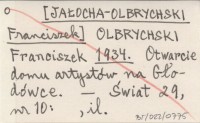 [JAŁOCHA-OLBRYCHSKI
Franciszek] OLBRYCHSKI
Franciszek 1934. Otwarcie
domu artystów na Gło-
dówce. — Świat 29,
nr 10: , il.
BJ/022/0775